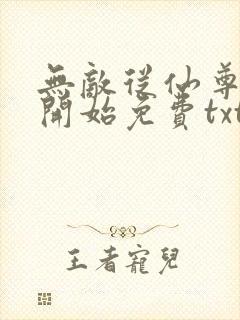 無敵從仙尊
開始免費txt
王者寵兒